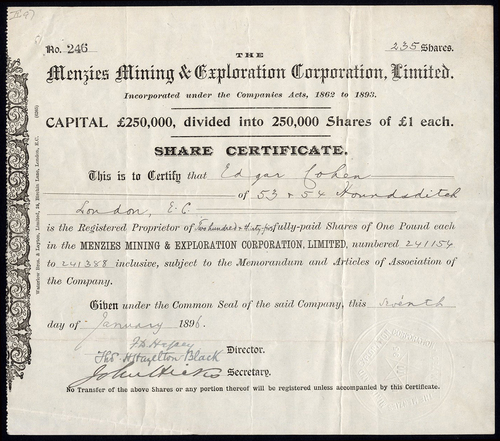 No. 246
235 Shares.
THE
Menzies Mining & Exploration Corporation, Limited.
Incorporated under the Companies Acts, 1862 to 1893.
CAPITAL £250,000, divided into 250,000 Shares of £1 each.
SHARE CERTIFICATE.
This is to Certify that Edgar Cohen
of 53 & 54 Houndsditch
London, E.C
is the Registered Proprietor of Two hundred & thirty five fully-paid Shares of One Pound each
in the MENZIES MINING & EXPLORATION CORPORATION, LIMITED, numbered 241154
to 241388 inclusive, subject to the Memorandum and Articles of Association of
the Company.
Given under the Common Seal of the said Company, this Seventh
day of January 1896.
Hamilton Black
Director.
John Hicks
Secretary.
No Transfer of the above Shares or any portion thereof will be registered unless accompanied by this Certificate.
Waterlow Bros. & Layton, Limited, 24, Birchin Lane, London, E.C.